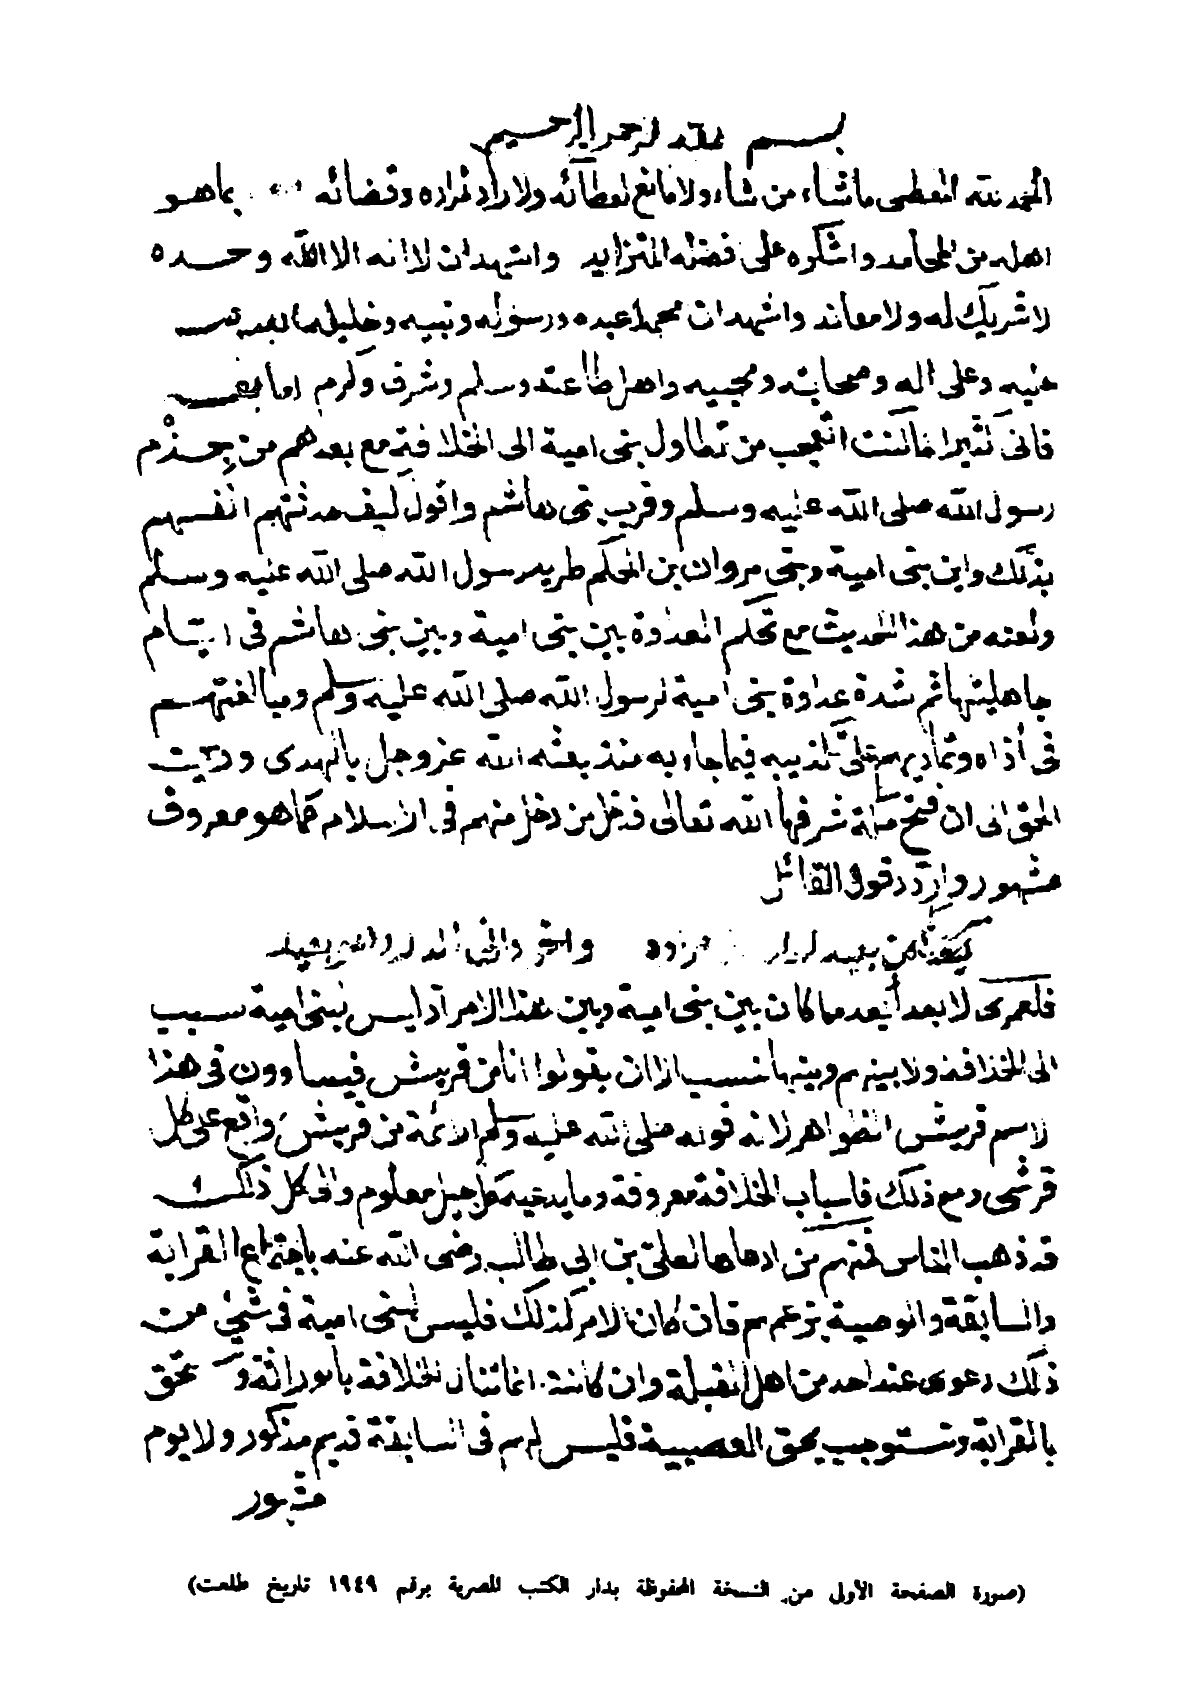 بسم الله الرحمن الرحيم
الحمد لله المعطى ماشاء من شاء ولا مانع لعطائه ولا راد لمراده وقضائه بماهو
اهله من المحامد واشكره على فضله المتزايد واشهد ان لا اله الا الله وحده
لا شريك له ولا معاند واشهد ان محمدا عبده ورسوله ونبيه وخليله
عليه وعلى اله وصحابته ومحبيه واهل طاعته وسلم وشرف وكرم اما بعد
فانى كثيرا ماكنت اتعجب من تطاول بنى امية الى الخلافة مع بعدهم من جذم
رسول الله صلى الله عليه وسلم وقرب بنى هاشم واقول كيف حدثتهم انفسهم
بذلك واين بنى امية وبنى مروان بن الحكم طريد رسول الله صلى الله عليه وسلم
ولعنه من هذا الحديث مع تحكم العداوة بين بنى امية وبين بنى هاشم فى ايام
جاهليتها ثم شدة عداوة بنى امية لرسول الله صلى الله عليه وسلم ومبالغتهم
فى أذاه وتماديهم على تكذيبه فيما جاء به منذ بعثه الله عز وجل بالهدى ودين
الحق الى ان فتح مكة شرفها الله تعالى فدخل من دخل منهم فى الاسلام كما هو معروف
مشهور واردد قول القائل
كم من بعيد الدار واخر دانى الدار وهو بعيد
فلعمرى لا بعد أبعد مما كان بين بنى امية وبين هذا الامر اذ ليس لبنى امية سبب
الى الخلافة ولا بينهم وبينها نسب الا ان يقولوا انا من قريش فيساوون فى هذا
الاسم قريش الظواهر لانه قوله صلى الله عليه وسلم الائمة من قريش واقع على كل
قرشى ومع ذلك فاسباب الخلافة معروفة وما يدعيه كل جيل معلوم والى كل ذلك
قد ذهب الناس فمنهم من ادعاها لعلى بن ابى طالب رضى الله عنه باجتماع القرابة
والسابقة والوصية بزعمهم فان كان الامر كذلك فليس لبنى امية فى شئ من
ذلك دعوى عند احد من اهل القبلة وان كانت انما تنال الخلافة بالوراثة وتستحق
بالقرابة وتستوجب بحق العصبية فليس لهم فى السابقة قديم مذكور ولا يوم
مشهور
(صورة الصفحة الأولى من النسخة المحفوظة بدار الكتب المصرية برقم ١٩٤٩ تاريخ طلعت)